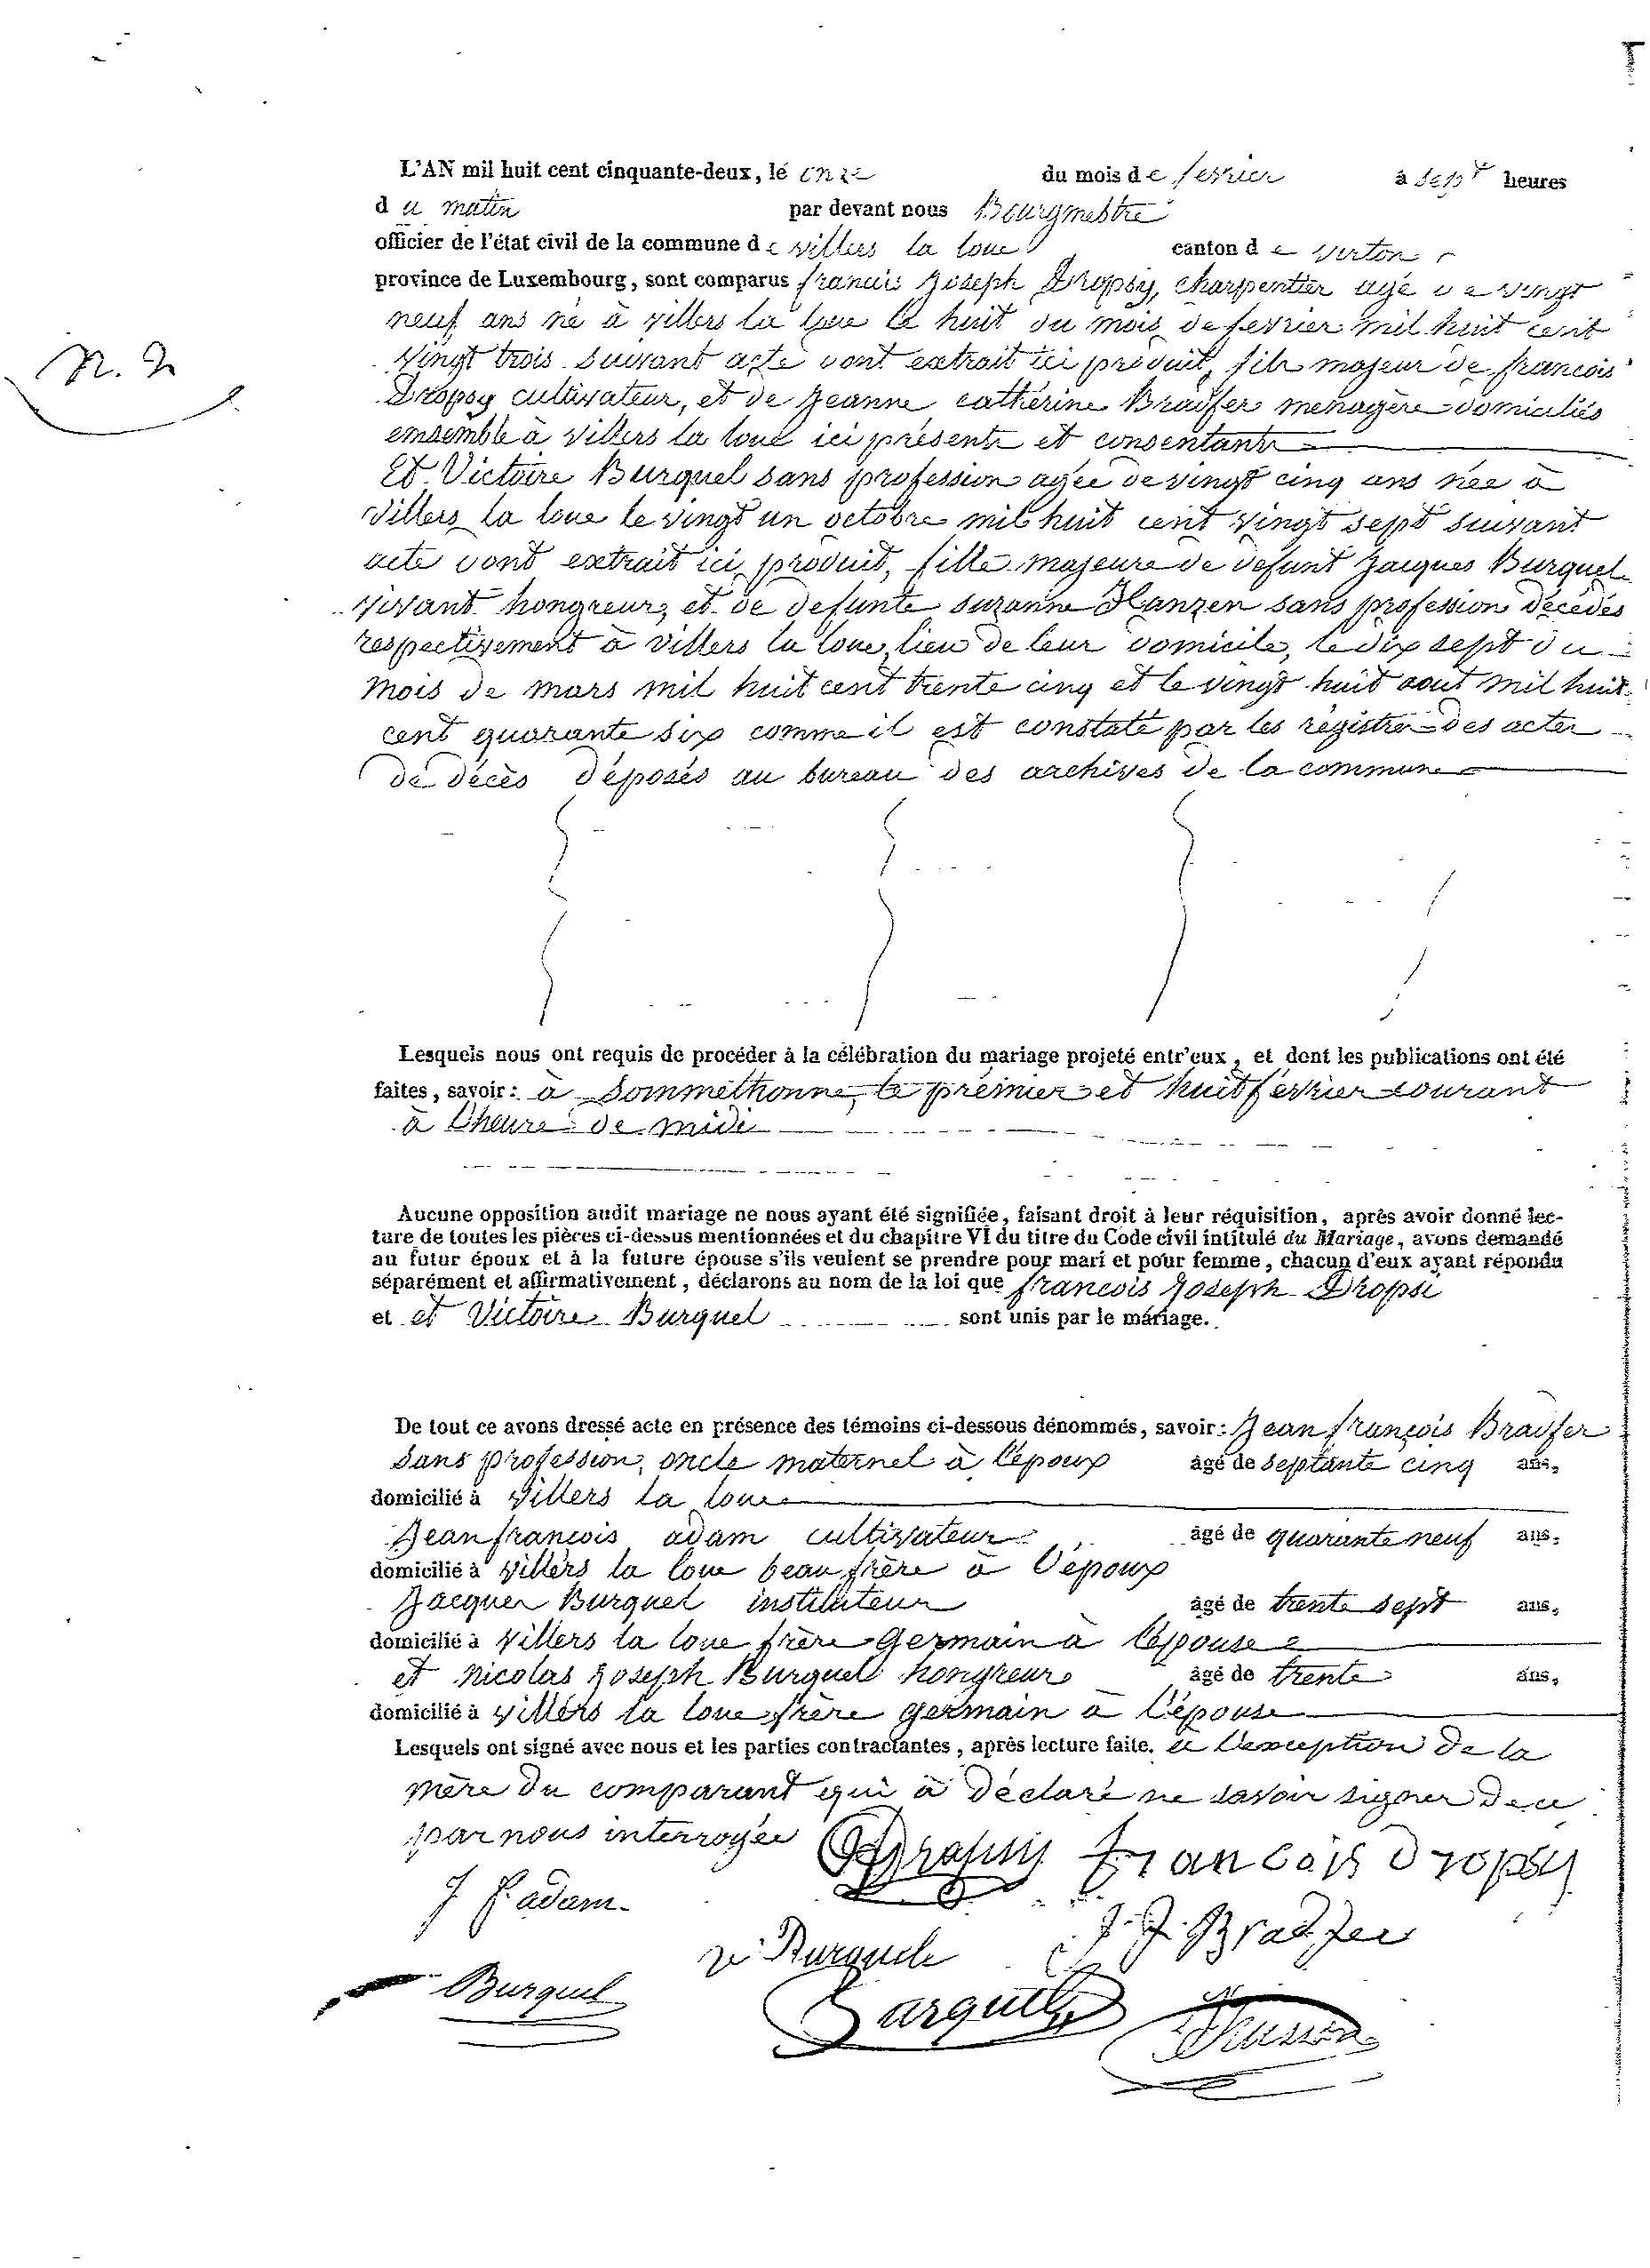 L'AN mil huit cent cinquante-deux, lé onze du mois de fevrier à sept heures
du matin par devant nous Bourgmestre
officier de l'état civil de la commune de villers la loue canton de virton
province de Luxembourg, sont comparus francois Joseph Dropsy, charpentier agé de vingt
neuf ans né à villers la loue le huit du mois de fevrier mil huit cent
N. 2
vingt trois suivant acte dont extrait ici produit, fils majeur de francois
Dropsy cultivateur, et de Jeanne cathérine Bradfer menagère domiciliés
ensemble à villers la loue ici présents et consentants
Et Victoire Burquel sans profession agée de vingt cinq ans née à
villers la loue le vingt un octobre mil huit cent vingt sept suivant
acte dont extrait ici produit, fille majeure de defunt Jacques Burquel
vivant hongreur, et de defunte suzanne Hanzen sans profession décédés
respectivement à villers la loue, lieu de leur domicile, le dix sept du
mois de mars mil huit cent trente cinq et le vingt huit aout mil huit
cent quarante six comme il est constaté par les régistres des actes
de décès déposés au bureau des archives de la commune
Lesquels nous ont requis de procéder à la célébration du mariage projeté entr'eux, et dont les publications ont été
faites, savoir: à Sommethonne, le prémier et huit févrièr courant
à l'heure de midi
Aucune opposition audit mariage ne nous ayant été signifiée, faisant droit à leur réquisition, après avoir donné lec-
ture de toutes les pièces ci-dessus mentionnées et du chapitre VI du titre du Code civil intitulé du Mariage, avons demandé
au futur époux et à la future épouse s'ils veulent se prendre pour mari et pour femme, chacun d'eux ayant répondu
séparément et affirmativement, déclarons au nom de la loi que francois Joseph Dropsi
et et Victoire Burquel sont unis par le mariage.
De tout ce avons dressé acte en présence des témoins ci-dessous dénommés, savoir: Jean françois Bradfer
sans profession, oncle maternel à l'époux âgé de septante cinq ans,
domicilié à villers la loue
Jean francois adam cultivateur âgé de quarante neuf ans,
domicilié à villers la loue beau frère à l'époux
Jacques Burquel instituteur âgé de trente sept ans,
domicilié à villers la loue frère germain à l'épouse
et nicolas Joseph Burquel hongreur âgé de trente ans,
domicilié à villers la loue frère germain à l'épouse
Lesquels ont signé avec nous et les parties contractantes, après lecture faite. à l'exception de la
mère du comparant qui à déclaré ne savoir signer de ce
par nous interrogée Dropsy francois Dropsy
J f adam
J. f. Bradfer
Burquel
Burquel